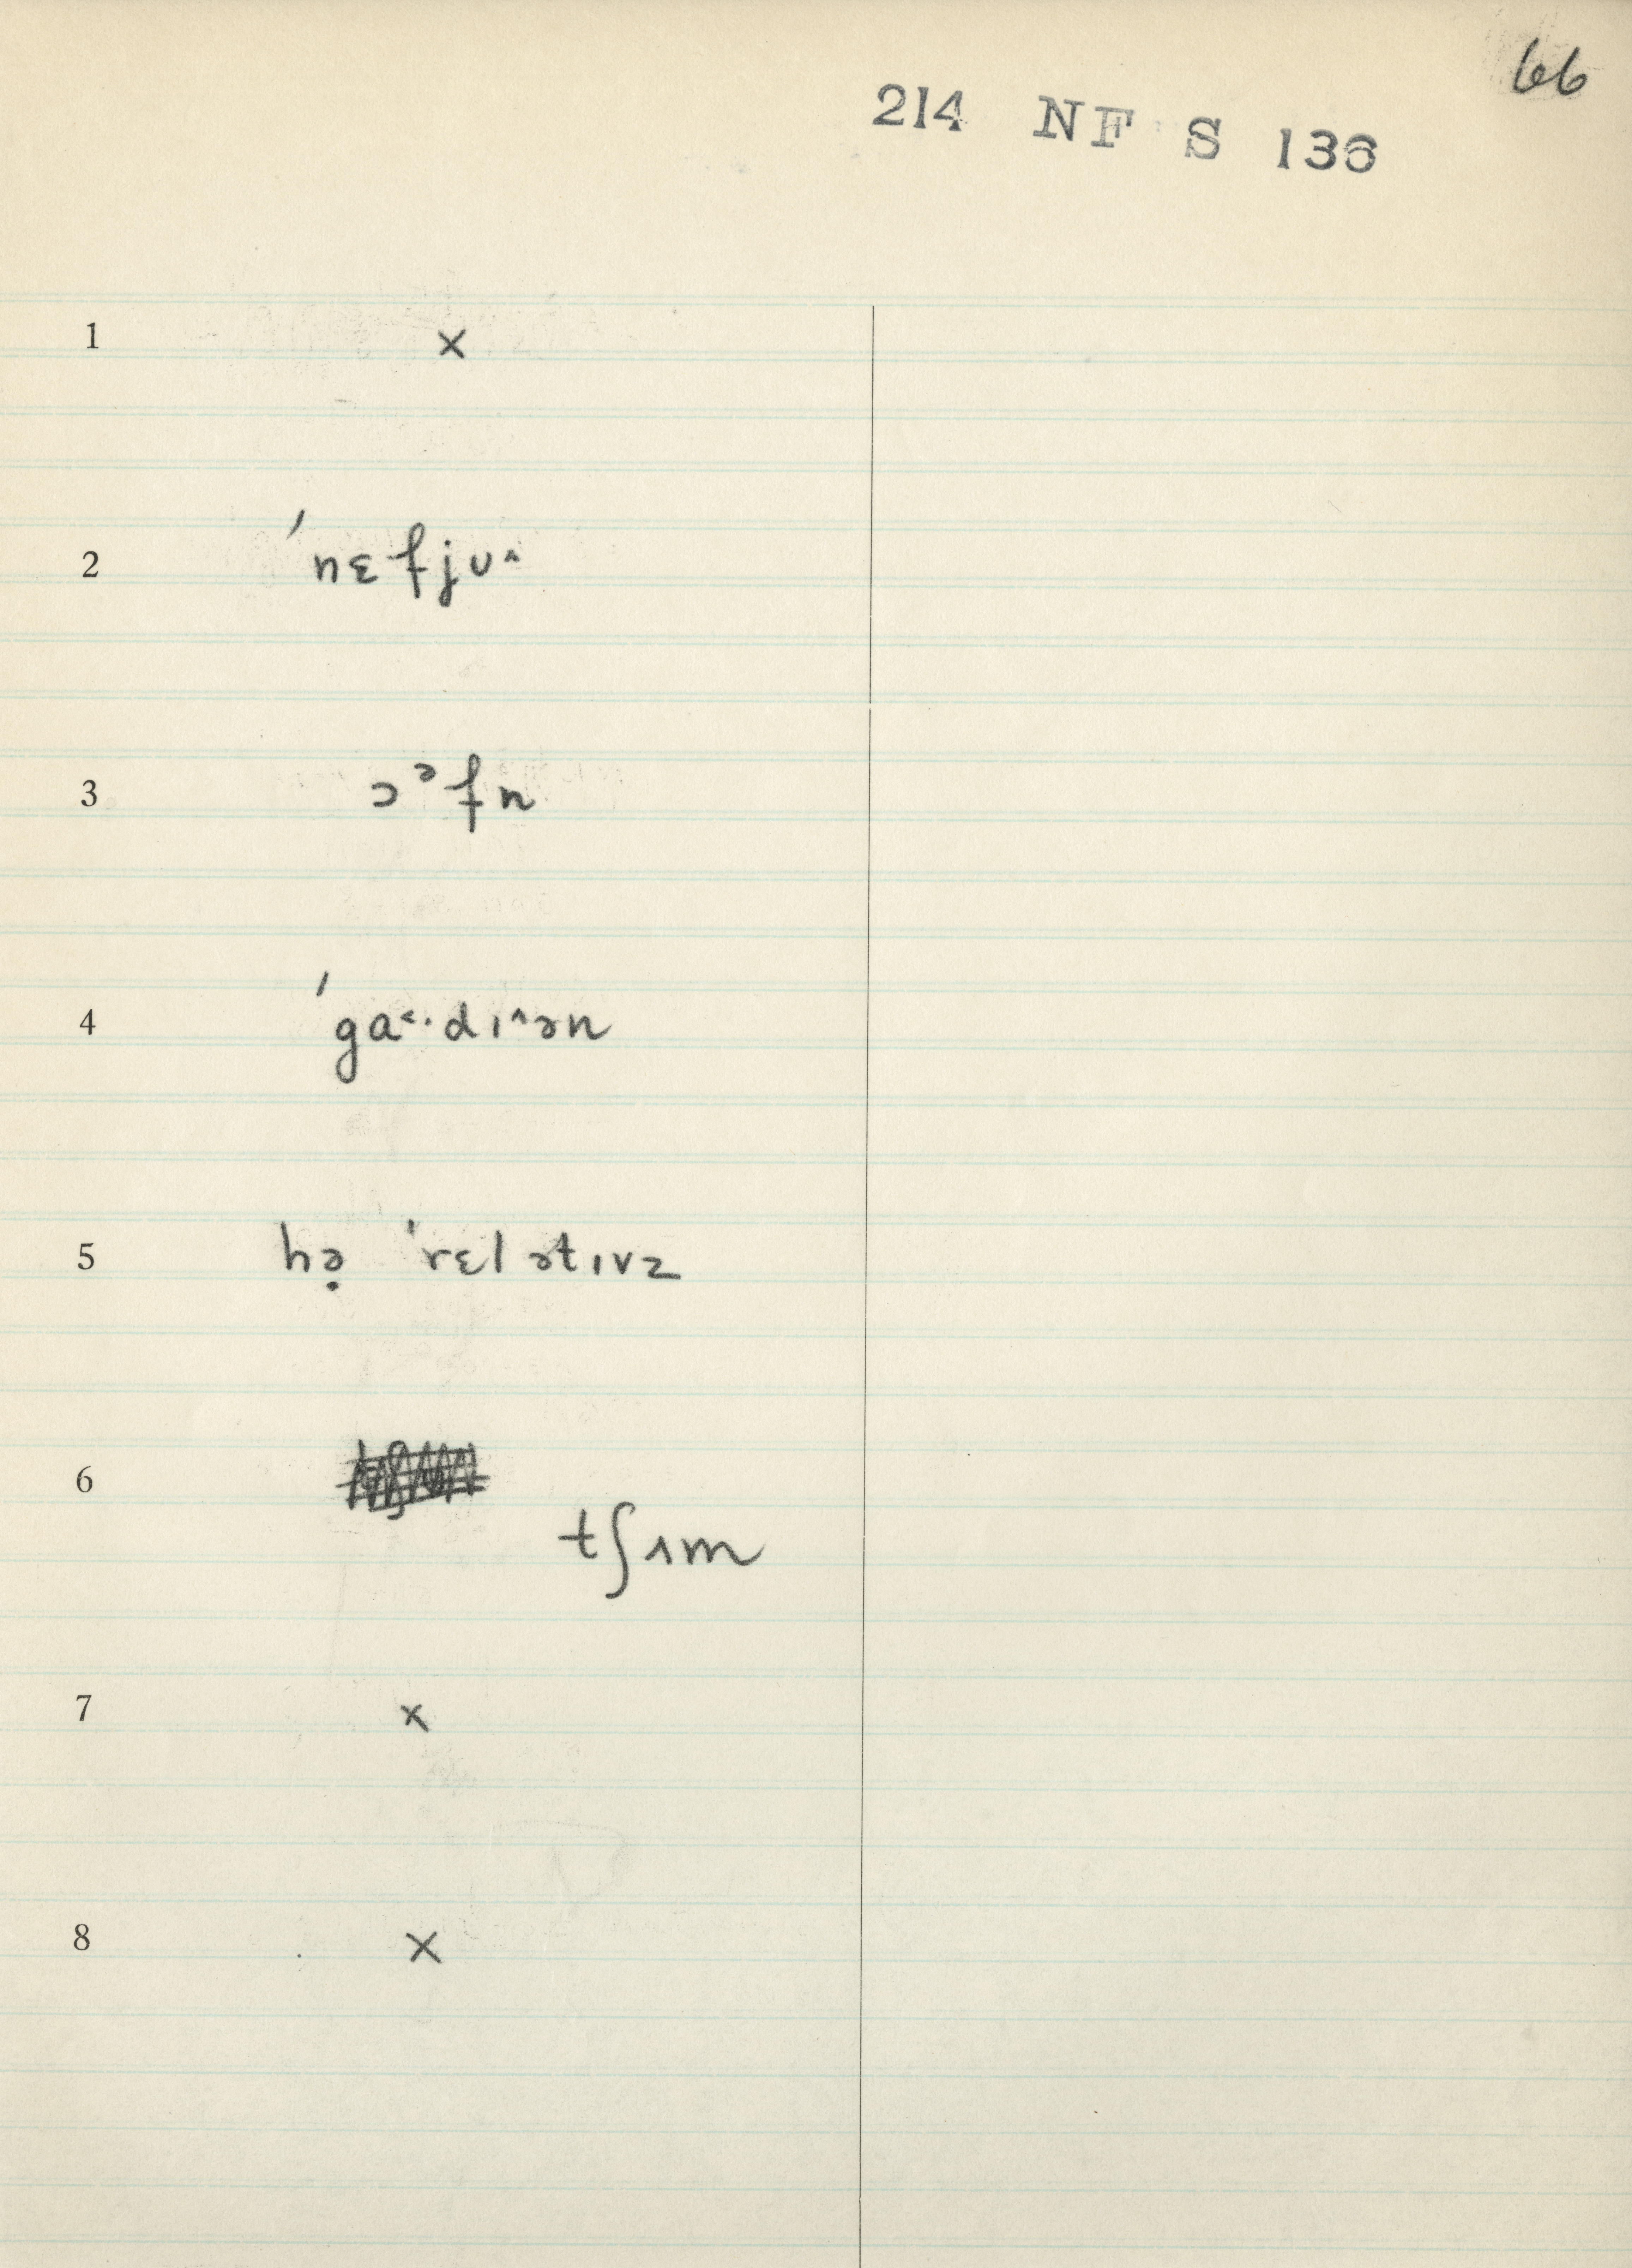 66
214 NF S 136
1 ×
2 ˈnɛfjʊ˄
3 ɔᵊfn
4 ˈga˂·dɪ˄ən
5 hə̣ ˈrɛlətɪvz
6 tʃʌm
7 ×
8 ×